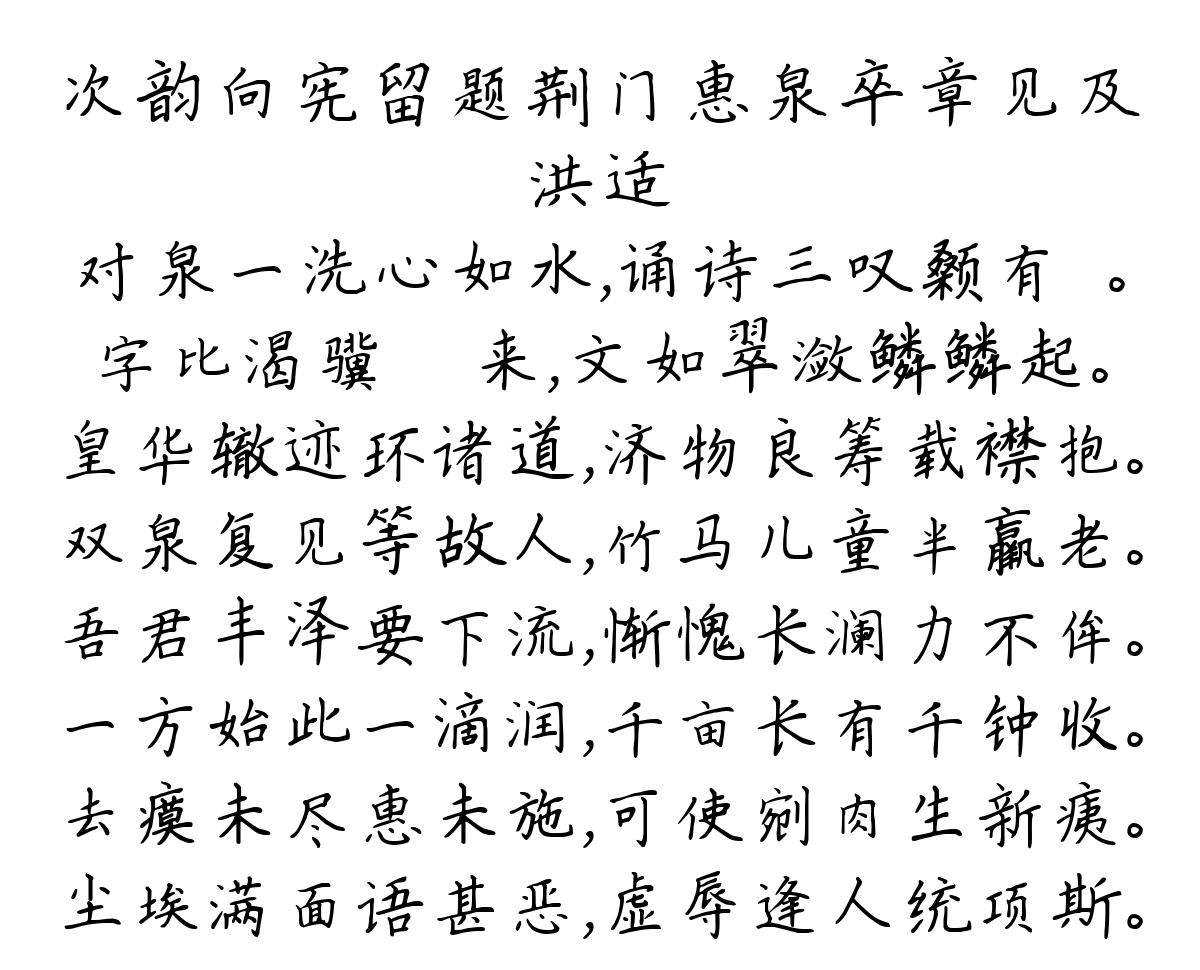 次韵向宪留题荆门惠泉卒章见及
洪适
对泉一洗心如水,诵诗三叹颡有 。
字比渴骥 来,文如翠潋鳞鳞起。
皇华辙迹环诸道,济物良筹载襟抱。
双泉复见等故人,竹马儿童半羸老。
吾君丰泽要下流,惭愧长澜力不侔。
一方始此一滴润,千亩长有千钟收。
去瘼未尽惠未施,可使剜肉生新痍。
尘埃满面语甚恶,虚辱逢人统项斯。